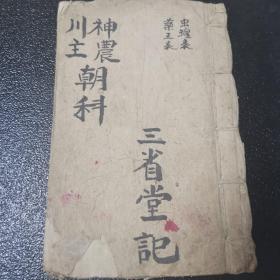 虫蝗表
药王表
神農
川主
朝科
三省堂記